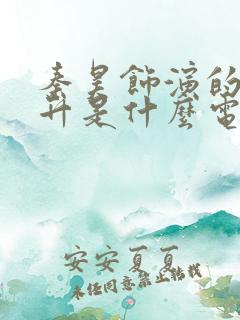 秦昊饰演的
升是什麼電
安安夏夏
未经同意禁止转载